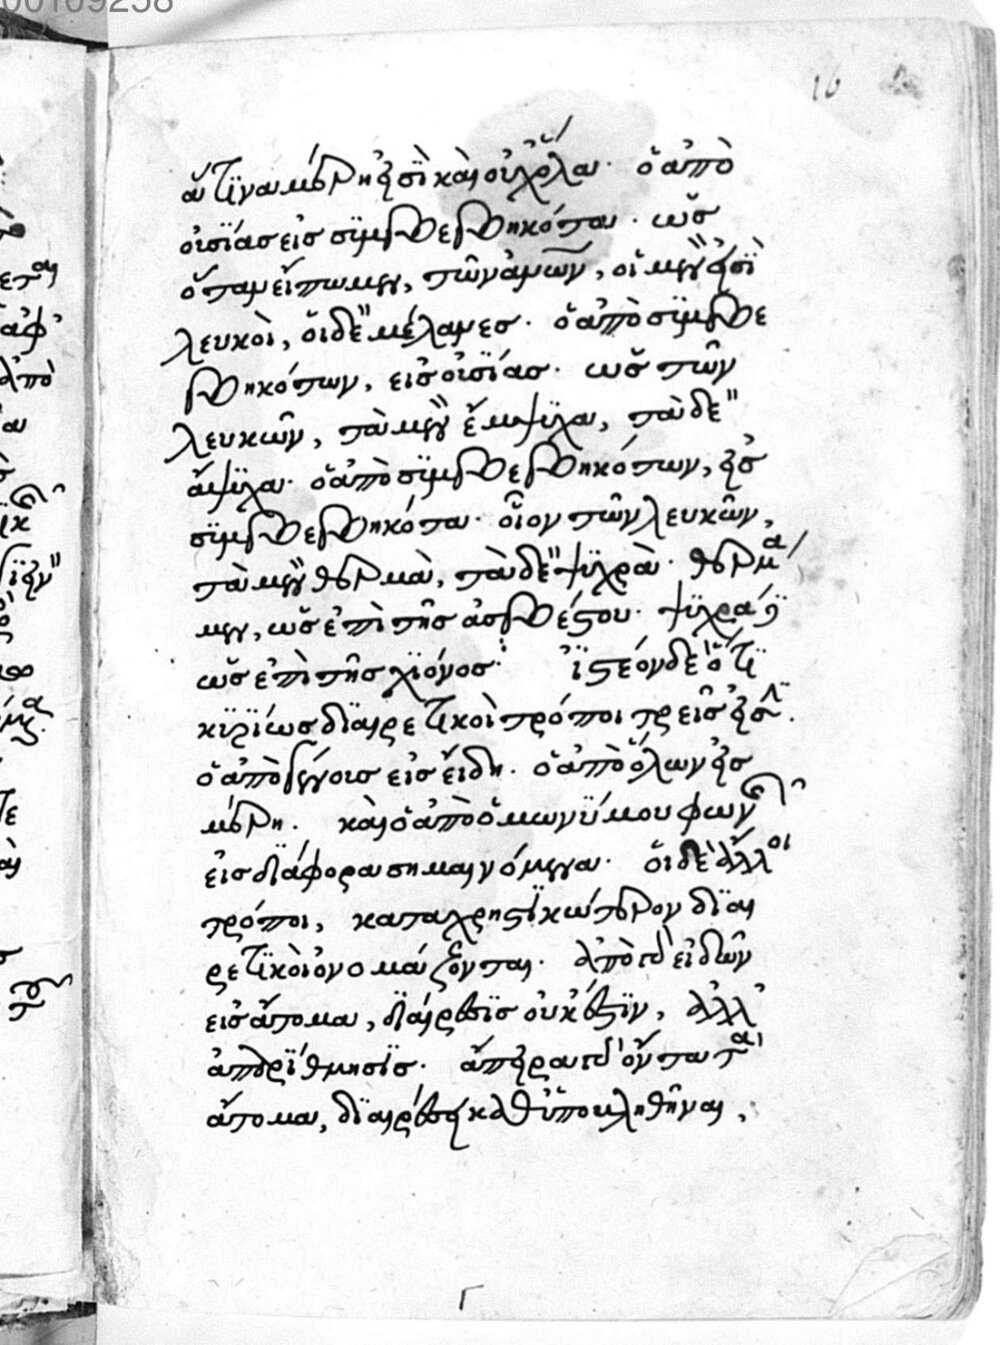 00109258
16
ἅτινα μέρη εἰσὶ καὶ οὐχ ὅλα· ὁ ἀπὸ
οὐσίας εἰς συμβεβηκότα· ὡς
ὅταν εἴπωμεν, τῶν ἀνων, οἱ μὲν εἰσὶ
λευκοὶ, οἱ δὲ μέλανες· ὁ ἀπὸ συμβε
βηκότων, εἰς οὐσίας· ὡς τῶν
λευκῶν, τὰ μὲν ἔμψυχα, τὰ δὲ
ἄψυχα· ὁ ἀπὸ συμβεβηκότων, εἰς
συμβεβηκότα· οἷον τῶν λευκῶν,
τὰ μὲν θερμὰ, τὰ δὲ ψυχρὰ· θερμὰ
μὲν, ὡς ἐπὶ τῆς ἀσβέστου· ψυχρὰ δὲ
ὡς ἐπὶ τῆς χιόνος· ἰστέον δὲ ὅτι
κυρίως διαιρετικοὶ τρόποι τρεῖς εἰσὶν.
ὁ ἀπὸ γένους εἰς εἴδη· ὁ ἀπὸ ὅλων εἰς
μέρη· καὶ ὁ ἀπὸ ὁμωνύμου φωνῆς
εἰς διάφορα σημαινόμενα· οἱ δὲ ἄλλοι
τρόποι, καταχρηστικώτερον διαι
ρετικοὶ ὀνομάζονται· ἀπὸ δὲ εἰδῶν
εἰς ἄτομα, διαίρεσις οὐκ ἔστιν, ἀλλ'
ἀπαρίθμησις· ἄπειρα δ' ὄντα τὰ
ἄτομα, διαιρέσει καθυποκληθῆναι,
Γ